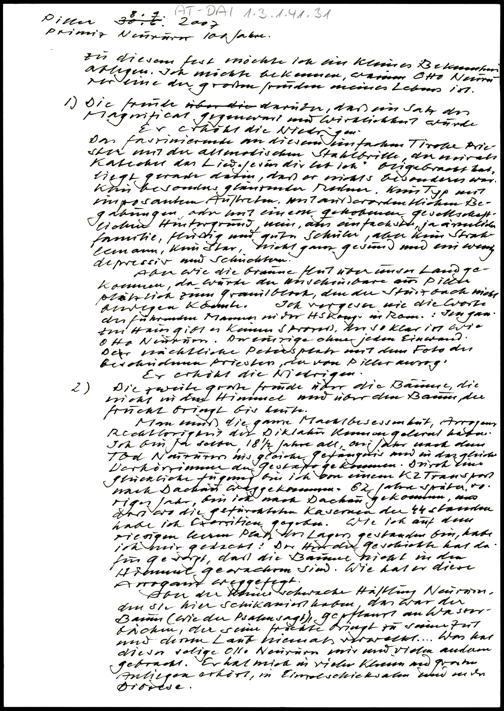 AT-DAI 1.3.1.41.31
Piller 2007
Primiz Neururer 100 Jahre.
Zu diesem Fest möchte ich ein kleines Bekenntnis
ablegen. Ich möchte bekennen, warum Otto Neuru
rer eine der großen Freuden meines Lebens ist.
1) Die Freude über die darüber, daß ein Satz des
Magnificat gegenwart und Wirklichkeit wurde
Er erhöht die Niedrigen.
Das Faszinierende an diesem einfachen Tiroler Prie-
ster mit der altmodischen Stahlbrille, der mir als
Katechet das Lied, beigebracht hat,
liegt gerade darin, daß er nichts besonderes war.
Kein besonders glänzender Redner. Kein Typ mit
imposanten Auftreten. mit außerordentlichen Be-
gabungen oder mit einem gehobenen gesellschaft-
lichen Hintergrund nein, aus einfachster, ja ärmlicher
Familie, fleißig und guter Schüler, aber kein Strah-
lemann, kein Star, nicht ganz gesund und ein wenig
depressiv und schüchtern.
Aber wie die braune Flut über unser Land ge-
kommen, da wurde der unscheinbare aus Piller
plötzlich zum Granitblock, den der Sturzbach nicht
bewegen konnte. Ich vergesse nie die Worte
des führenden Mannes in der in Rom:
Im Haus gibt es keinen So klar ist wie
Otto Neururer. Der einzige ohne jeden Einwand.
Der nächtliche Petersplatz mit dem Foto des
bescheidenen Priesters, der von Piller auszog.
Er erhöht die Niedrigen.
2) Die zweite große Freude über die Bäume, die
nicht in den Himmel und über den Baum, der
Frucht bringt bis heute.
Man muß die ganze Machtbesessenheit, Arroganz
Rechtlosigkeit der Diktatur kennengelernt haben.
Ich bin ja selber 18 1/2 Jahre alt, drei Jahre nach dem
Tod Neururers ins gleiche Gefängnis und in das gleiche
Verhörzimmer der Gestapo gekommen. Durch eine
glückliche Fügung bin ich von einem KZ Transport
nach Dachau weggekommen. 62 Jahre später, vo-
riges Jahr, bin ich nach Dachau gekommen, und
dort wo die gefürchteten Kasernen der SS standen
habe ich Exerzitien gegeben. Wie ich auf dem
riesigen leeren Platz des Lagers gestanden bin, habe
ich mir gedacht: Der Herr der Geschichte hat da-
für gesorgt, daß die Bäume nicht in den
Himmel gewachsen sind. Wie hat er diese
Arroganz weggefegt.
Aber der schwache Häftling Neururer,
den sie hier schikaniert haben, das war der
Baum (wie der Psalm sagt), gepflanzt an Wasser-
bächen, der seine Früchte bringt zu seiner Zeit
und deren Laub niemals verwelkt... Was hat
dieser selige Otto Neururer mir und vielen andern
gebracht. Er hat mich in vielen kleinen und großen
Anliegen erhört, in Einzelschicksalen und in der
Diözese.